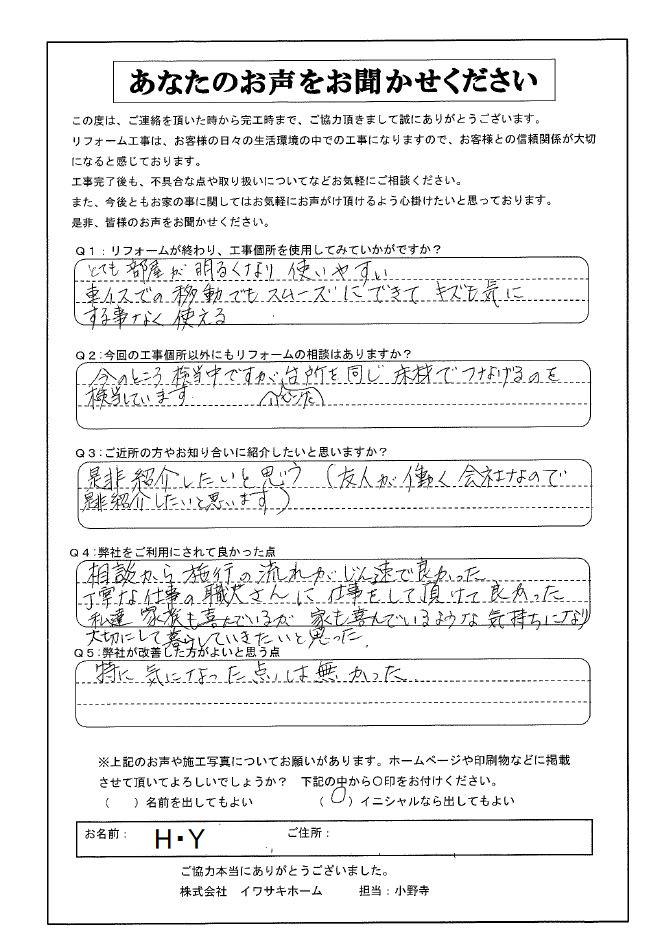 あなたのお声をお聞かせください
この度は、ご連絡を頂いた時から完工時まで、ご協力頂きまして誠にありがとうございます。
リフォーム工事は、お客様の日々の生活環境の中での工事になりますので、お客様との信頼関係が大切
になると感じております。
工事完了後も、不具合な点や取り扱いについてなどお気軽にご相談ください。
また、今後ともお家の事に関してはお気軽にお声がけ頂けるよう心掛けたいと思っております。
是非、皆様のお声をお聞かせください。
Q1:リフォームが終わり、工事個所を使用してみていかがですか?
とても部屋が明るくなり使いやすい
車イスでの移動でもスムーズにできてキズも気に
する事なく使える
Q2:今回の工事個所以外にもリフォームの相談はありますか?
今のところ検討中ですが台所を同じ床材でつなげるのを
検討しています
Q3:ご近所の方やお知り合いに紹介したいと思いますか?
是非紹介したいと思う(友人が働く会社なので
是非紹介したいと思います)
Q4:弊社をご利用にされて良かった点
相談から施行の流れがじん速で良かった
丁寧な仕事の職人さんに仕事をして頂けて良かった
私達家族も喜んでいるが家も喜んでいるような気持ちになり
大切にして暮らしていきたいと思った。
Q5:弊社が改善した方がよいと思う点
特に気になった点は無かった
※上記のお声や施工写真についてお願いがあります。ホームページや印刷物などに掲載
させて頂いてよろしいでしょうか? 下記の中から○印をお付けください。
( )名前を出してもよい (○)イニシャルなら出してもよい
お名前: H・Y ご住所:
ご協力本当にありがとうございました。
株式会社 イワサキホーム 担当:小野寺